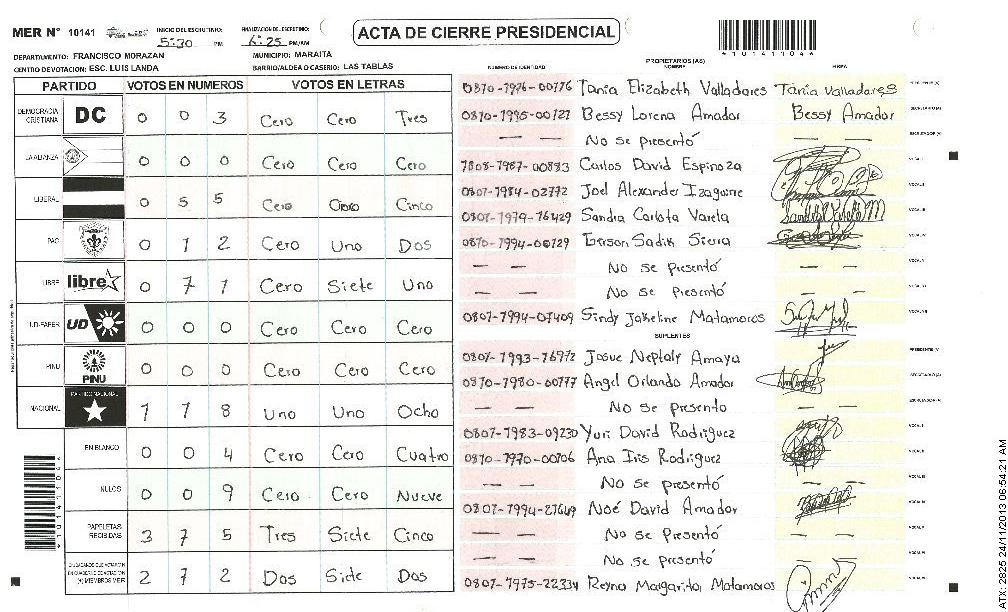 MER N° 10141 INICIO DEL ESCRUTINIO: 5:30 PM FINALIZACION DEL ESCRUTINIO: 6:25 PM/AM ACTA DE CIERRE PRESIDENCIAL
4101411044
DEPARTAMENTO: FRANCISCO MORAZAN MUNICIPIO: MARAITA
CENTRO DE VOTACION: ESC. LUIS LANDA BARRIO/ALDEA O CASERIO: LAS TABLAS
PROPRIETARIOS (AS)
NUMERO DE IDENTIDAD NOMBRE FIRMA
PARTIDO VOTOS EN NUMEROS VOTOS EN LETRAS
DEMOCRACIA CRISTIANA DC 0 0 3 Cero Cero Tres
LA ALIANZA 0 0 0 Cero Cero Cero
LIBERAL 0 5 5 Cero Cinco
PAC 0 1 2 Cero Uno Dos
LIBRE libre 0 7 1 Cero Siete Uno
UD-FAPER UD 0 0 0 Cero Cero Cero
PINU PINU 0 0 0 Cero Cero Cero
NACIONAL PARTIDO NACIONAL 1 1 8 Uno Uno Ocho
EN BLANCO 0 0 4 Cero Cero Cuatro
NULOS 0 0 9 Cero Cero Nueve
PAPELETAS RECIBIDAS 3 7 5 Tres Siete Cinco
CIUDADANOS QUE VOTARON EN CUADERNO DE VOTACION (+) MIEMBROS MER 2 7 2 Dos Siete Dos
0870-1976-00776 Tania Elizabeth Valladares Tania Valladares
0870-1995-00127 Bessy Lorena Amador Bessy Amador
— — No se presentó — —
Carlos David Espinoza
0807-1984-02772 Joel Alexander Izaguirre
0807-1979-16429 Sandra Carlota Varela
0870-1994-00129 Erison Sadik Sierra
— — No se presentó — —
— — No se presentó — —
0807-1994-07409 Sindy Jakeline Matamoros
SUPLENTES
0807-1993-16972 Josue Neptaly Amaya
0870-1980-00777 Angel Orlando Amador
— — No se presento — —
0807-1983-09230 Yuri David Rodriguez
0870-1970-00706 Ana Iris Rodriguez
— — No se presentó — —
0807-1994-27649 Noé David Amador
— — No se presentó — —
— — No se presentó — —
0807-1975-22334 Reyna Margarita Matamoros
4101411044
ATX-2925 24/11/2013 06:54:21 AM